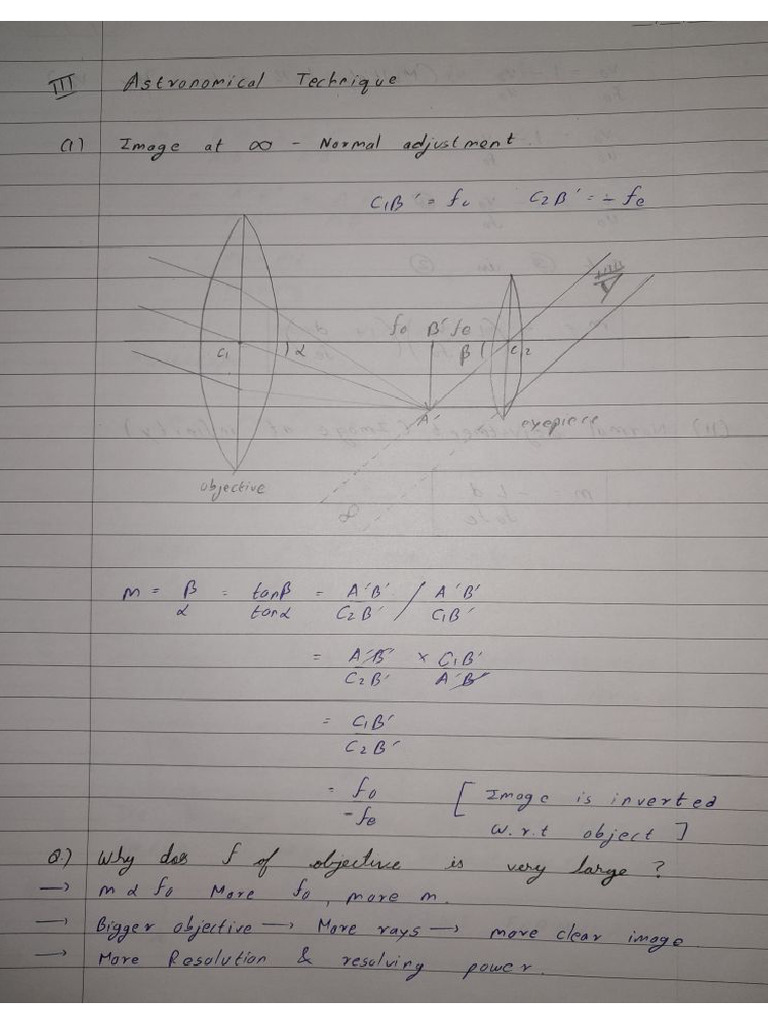 III Astronomical Technique
(1) Image at ∞ - Normal adjustment.
C1B' = fo C2B' = - fe
fo B' fe
C1 ) α β ( C2
A'
eyepiece
objective
∞
m = β/α = tanβ/tanα = A'B'/C2B' / A'B'/C1B'
= A'B'/C2B' × C1B'/A'B'
= C1B'/C2B'
= fo/-fe [ Image is inverted
w.r.t object ]
Q.) Why does f of objective is very large ?
→ m α fo More fo, more m.
→ Bigger objective → More rays → more clear image.
→ More Resolution & resolving power.